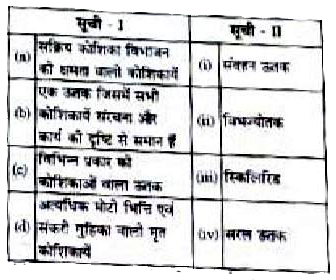 सूची - I सूची - II
(a) सक्रिय कोशिका विभाजन
की क्षमता वाली कोशिकायें (i) संवहन ऊतक
एक ऊतक जिसमें सभी
(b) कोशिकायें संरचना और (ii) विभज्योतक
कार्य की दृष्टि से समान हैं
(c) विभिन्न प्रकार की
कोशिकाओं वाला ऊतक (iii) स्किलिरिड
अत्यधिक मोटी भित्ति एवं
(d) संकरी गुहिका वाली मृत (iv) सरल ऊतक
कोशिकायें